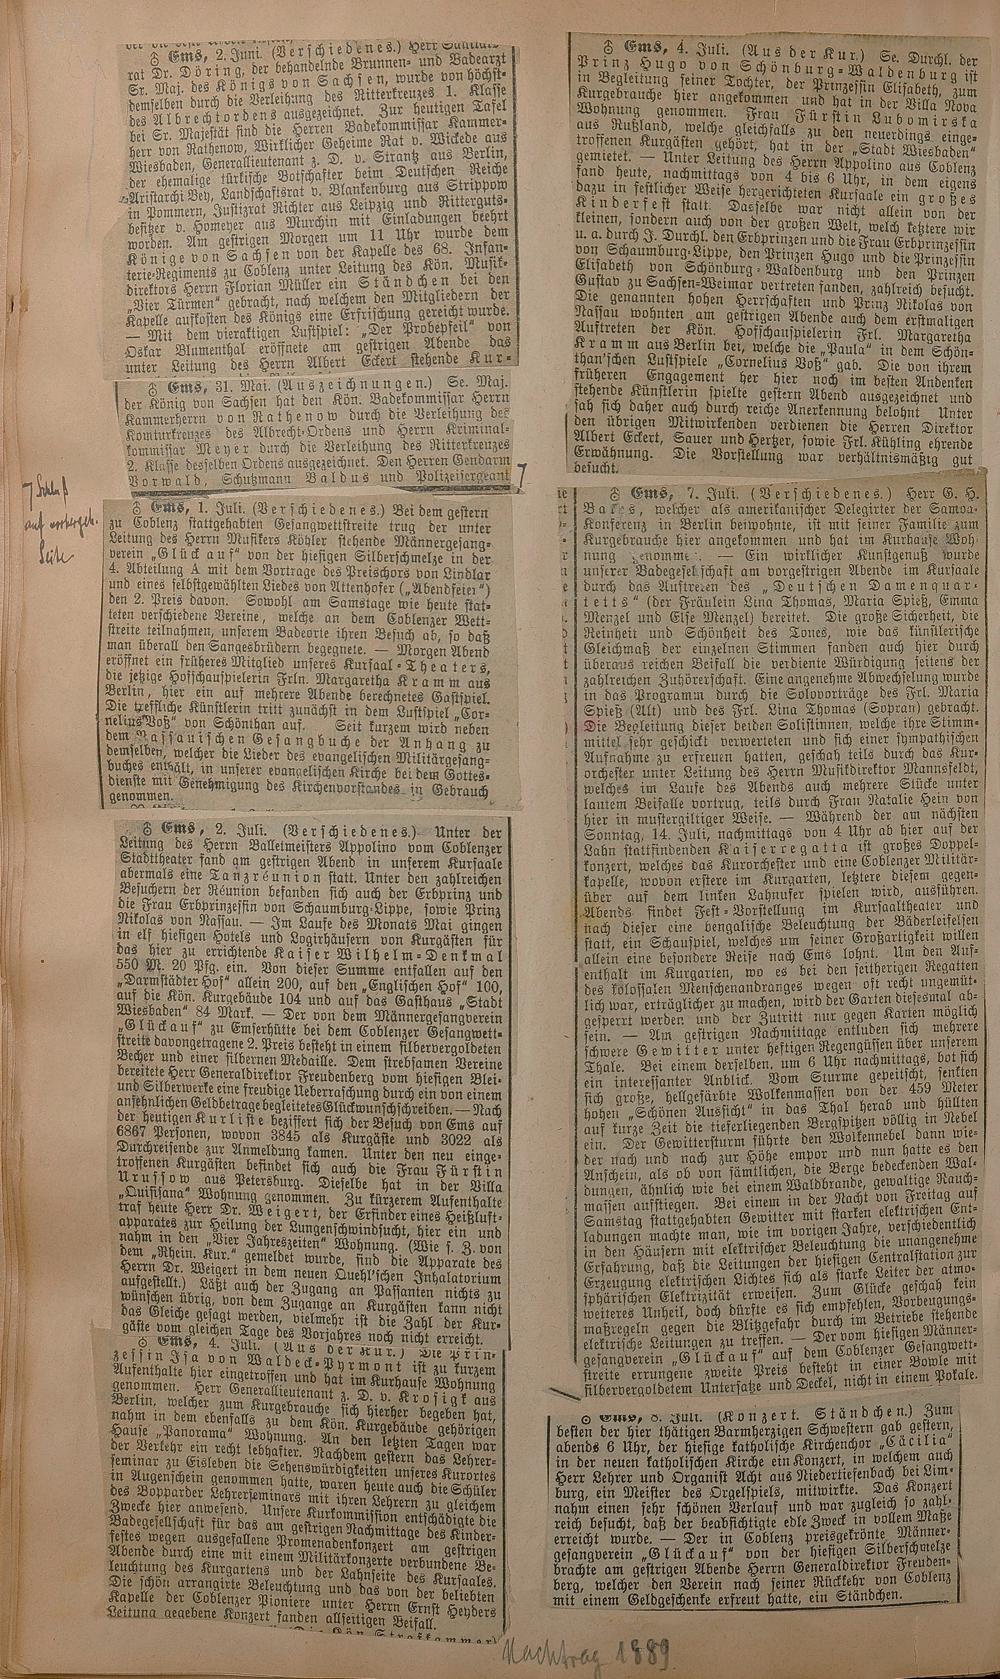 ☿ Ems, 2. Juni. (Verschiedenes.) Herr Sanitäts-
rat Dr. Döring, der behandelnde Brunnen- und Badearzt
Sr. Maj. des Königs von Sachsen, wurde von höchst-
demselben durch die Verleihung des Ritterkreuzes 1. Klasse
des Albrechtordens ausgezeichnet. Zur heutigen Tafel
bei Sr. Majestät sind die Herren Badekommissar Kammer-
herr von Rathenow, Wirklicher Geheime Rat v. Wickede aus
Wiesbaden, Generallieutenant z. D. v. Strantz aus Berlin,
der ehemalige türkische Botschafter beim Deutschen Reiche
Aristarchi-Bey, Landschaftsrat v. Blankenburg aus Strippow
in Pommern, Justizrat Richter aus Leipzig und Ritterguts-
besitzer v. Homeyer aus Murchin mit Einladungen beehrt
worden. Am gestrigen Morgen um 11 Uhr wurde dem
Könige von Sachsen von der Kapelle des 68. Infan-
terie-Regiments zu Coblenz unter Leitung des Kön. Musik-
direktors Herrn Florian Müller ein Ständchen bei den
„Vier Türmen“ gebracht, nach welchem den Mitgliedern der
Kapelle aufkosten des Königs eine Erfrischung gereicht wurde.
— Mit dem vieraktigen Lustspiel: „Der Probepfeil“ von
Oskar Blumenthal eröffnete am gestrigen Abende das
unter Leitung des Herrn Albert Eckert stehende Kur-
☿ Ems, 31. Mai. (Auszeichnungen.) Se. Maj.
der König von Sachsen hat den Kön. Badekommissar Herrn
Kammerherrn von Rathenow durch die Verleihung des
Komturkreuzes des Albrecht-Ordens und Herrn Kriminal-
kommissar Meyer durch die Verleihung des Ritterkreuzes
2. Klasse desselben Ordens ausgezeichnet. Den Herren Gendarm
Vorwald, Schutzmann Baldus und Polizeisergeant
Schluß
auf
Seite
☿ Ems, 1. Juli. (Verschiedenes.) Bei dem gestern
zu Coblenz stattgehabten Gesangwettstreite trug der unter
Leitung des Herrn Musikers Köhler stehende Männergesang-
verein „Glück auf“ von der hiesigen Silberschmelze in der
4. Abteilung A mit dem Vortrage des Preischors von Lindlar
und eines selbstgewählten Liedes von Attenhofer („Abendfeier“)
den 2. Preis davon. Sowohl am Samstage wie heute stat-
teten verschiedene Vereine, welche an dem Coblenzer Wett-
streite teilnahmen, unserem Badeorte ihren Besuch ab, so daß
man überall den Sangesbrüdern begegnete. — Morgen Abend
eröffnet ein früheres Mitglied unseres Kursaal-Theaters,
die jetzige Hofschauspielerin Frln. Margaretha Kramm aus
Berlin, hier ein auf mehrere Abende berechnetes Gastspiel.
Die treffliche Künstlerin tritt zunächst in dem Lustspiel „Cor-
nelius Voß“ von Schönthan auf. Seit kurzem wird neben
dem Nassauischen Gesangbuche der Anhang zu
demselben, welcher die Lieder des evangelischen Militärgesang-
buches enthält, in unserer evangelischen Kirche bei dem Gottes-
dienste mit Genehmigung des Kirchenvorstandes in Gebrauch
genommen.
☿ Ems, 2. Juli. (Verschiedenes.) Unter der
Leitung des Herrn Balletmeisters Appolino vom Coblenzer
Stadttheater fand am gestrigen Abend in unserem Kursaale
abermals eine Tanzréunion statt. Unter den zahlreichen
Besuchern der Réunion befanden sich auch der Erbprinz und
die Frau Erbprinzessin von Schaumburg-Lippe, sowie Prinz
Nikolas von Nassau. — Im Laufe des Monats Mai gingen
in elf hiesigen Hotels und Logirhäusern von Kurgästen für
das hier zu errichtende Kaiser Wilhelm-Denkmal
550 M. 20 Pfg. ein. Von dieser Summe entfallen auf den
„Darmstädter Hof“ allein 200, auf den „Englischen Hof“ 100,
auf die Kön. Kurgebäude 104 und auf das Gasthaus „Stadt
Wiesbaden“ 84 Mark. — Der von dem Männergesangverein
„Glückauf“ zu Emserhütte bei dem Coblenzer Gesangwett-
streite davongetragene 2. Preis besteht in einem silbervergoldeten
Becher und einer silbernen Medaille. Dem strebsamen Vereine
bereitete Herr Generaldirektor Freudenberg vom hiesigen Blei-
und Silberwerke eine freudige Ueberraschung durch ein von einem
ansehnlichen Geldbetrage begleitetes Glückwunschschreiben. — Nach
der heutigen Kurliste beziffert sich der Besuch von Ems auf
6867 Personen, wovon 3845 als Kurgäste und 3022 als
Durchreisende zur Anmeldung kamen. Unter den neu einge-
troffenen Kurgästen befindet sich auch die Frau Fürstin
Urussow aus Petersburg. Dieselbe hat in der Villa
„Quisisana“ Wohnung genommen. Zu kürzerem Aufenthalte
traf heute Herr Dr. Weigert, der Erfinder eines Heißluft-
apparates zur Heilung der Lungenschwindsucht, hier ein und
nahm in den „Vier Jahreszeiten“ Wohnung. (Wie s. Z. von
dem „Rhein. Kur.“ gemeldet wurde, sind die Apparate des
Herrn Dr. Weigert in dem neuen Quehl'schen Inhalatorium
aufgestellt.) Läßt auch der Zugang an Passanten nichts zu
wünschen übrig, von dem Zugange an Kurgästen kann nicht
das Gleiche gesagt werden, vielmehr ist die Zahl der Kur-
gäste vom gleichen Tage des Vorjahres noch nicht erreicht.
☿ Ems, 4. Juli. (Aus der Kur.) Die Prin-
zessin Isa von Waldeck-Pyrmont ist zu kurzem
Aufenthalte hier eingetroffen und hat im Kurhause Wohnung
genommen. Herr Generallieutenant z. D. v. Krosigk aus
Berlin, welcher zum Kurgebrauche sich hierher begeben hat,
nahm in dem ebenfalls zu dem Kön. Kurgebäude gehörigen
Hause „Panorama“ Wohnung. An den letzten Tagen war
der Verkehr ein recht lebhafter. Nachdem gestern das Lehrer-
seminar zu Eisleben die Sehenswürdigkeiten unseres Kurortes
in Augenschein genommen hatte, waren heute auch die Schüler
des Bopparder Lehrerseminars mit ihren Lehrern zu gleichem
Zwecke hier anwesend. Unsere Kurkommission entschädigte die
Badegesellschaft für das am gestrigen Nachmittage des Kinder-
festes wegen ausgefallene Promenadenkonzert am gestrigen
Abende durch eine mit einem Militärkonzerte verbundene Be-
leuchtung des Kurgartens und der Lahnseite des Kursaales.
Die schön arrangirte Beleuchtung und das von der beliebten
Kapelle der Coblenzer Pioniere unter Herrn Ernst Heyders
Leitung gegebene Konzert fanden allseitigen Beifall.
☿ Ems, 4. Juli. (Aus der Kur.) Se. Durchl. der
Prinz Hugo von Schönburg-Waldenburg ist
in Begleitung seiner Tochter, der Prinzessin Elisabeth, zum
Kurgebrauche hier angekommen und hat in der Villa Nova
Wohnung genommen. Frau Fürstin Lubomirska
aus Rußland, welche gleichfalls zu den neuerdings einge-
troffenen Kurgästen gehört, hat in der „Stadt Wiesbaden“
gemietet. — Unter Leitung des Herrn Appolino aus Coblenz
fand heute, nachmittags von 4 bis 6 Uhr, in dem eigens
dazu in festlicher Weise hergerichteten Kursaale ein großes
Kinderfest statt. Dasselbe war nicht allein von der
kleinen, sondern auch von der großen Welt, welch letztere wir
u. a. durch J. Durchl. den Erbprinzen und die Frau Erbprinzessin
von Schaumburg-Lippe, den Prinzen Hugo und die Prinzessin
Elisabeth von Schönburg-Waldenburg und den Prinzen
Gustav zu Sachsen-Weimar vertreten fanden, zahlreich besucht.
Die genannten hohen Herrschaften und Prinz Nikolas von
Nassau wohnten am gestrigen Abende auch dem erstmaligen
Auftreten der Kön. Hofschauspielerin Frl. Margaretha
Kramm aus Berlin bei, welche die „Paula“ in dem Schön-
than'schen Lustspiele „Cornelius Voß“ gab. Die von ihrem
früheren Engagement her hier noch im besten Andenken
stehende Künstlerin spielte gestern Abend ausgezeichnet und
sah sich daher auch durch reiche Anerkennung belohnt. Unter
den übrigen Mitwirkenden verdienen die Herren Direktor
Albert Eckert, Sauer und Hertzer, sowie Frl. Kühling ehrende
Erwähnung. Die Vorstellung war verhältnismäßig gut
besucht.
☿ Ems, 7. Juli. (Verschiedenes.) Herr G. H.
Bates, welcher als amerikanischer Delegirter der Samoa-
Konferenz in Berlin beiwohnte, ist mit seiner Familie zum
Kurgebrauche hier angekommen und hat im Kurhause Woh-
nung genommen. — Ein wirklicher Kunstgenuß wurde
unserer Badegesellschaft am vorgestrigen Abende im Kursaale
durch das Auftreten des „Deutschen Damenquar-
tetts“ (der Fräulein Lina Thomas, Maria Spieß, Emma
Menzel und Else Menzel) bereitet. Die große Sicherheit, die
Reinheit und Schönheit des Tones, wie das künstlerische
Gleichmaß der einzelnen Stimmen fanden auch hier durch
überaus reichen Beifall die verdiente Würdigung seitens der
zahlreichen Zuhörerschaft. Eine angenehme Abwechselung wurde
in das Programm durch die Solovorträge des Frl. Maria
Spieß (Alt) und des Frl. Lina Thomas (Sopran) gebracht.
Die Begleitung dieser beiden Solistinnen, welche ihre Stimm-
mittel sehr geschickt verwerteten und sich einer sympathischen
Aufnahme zu erfreuen hatten, geschah teils durch das Kur-
orchester unter Leitung des Herrn Musikdirektor Mannsfeldt,
welches im Laufe des Abends auch mehrere Stücke unter
lautem Beifalle vortrug, teils durch Frau Natalie Hein von
hier in mustergiltiger Weise. — Während der am nächsten
Sonntag, 14. Juli, nachmittags von 4 Uhr ab hier auf der
Lahn stattfindenden Kaiserregatta ist großes Doppel-
konzert, welches das Kurorchester und eine Coblenzer Militär-
kapelle, wovon erstere im Kurgarten, letztere diesem gegen-
über auf dem linken Lahnufer spielen wird, ausführen.
Abends findet Fest-Vorstellung im Kursaaltheater und
nach dieser eine bengalische Beleuchtung der Bäderleifelsen
statt, ein Schauspiel, welches um seiner Großartigkeit willen
allein eine besondere Reise nach Ems lohnt. Um den Auf-
enthalt im Kurgarten, wo es bei den seitherigen Regatten
des kolossalen Menschenandranges wegen oft recht ungemüt-
lich war, erträglicher zu machen, wird der Garten diesesmal ab-
gesperrt werden und der Zutritt nur gegen Karten möglich
sein. — Am gestrigen Nachmittage entluden sich mehrere
schwere Gewitter unter heftigen Regengüssen über unserem
Thale. Bei einem derselben, um 6 Uhr nachmittags, bot sich
ein interessanter Anblick. Vom Sturme gepeitscht, senkten
sich große, hellgefärbte Wolkenmassen von der 459 Meter
hohen „Schönen Aussicht“ in das Thal herab und hüllten
auf kurze Zeit die tieferliegenden Bergspitzen völlig in Nebel
ein. Der Gewittersturm führte den Wolkennebel dann wie-
der nach und nach zur Höhe empor und nun hatte es den
Anschein, als ob von sämtlichen, die Berge bedeckenden Wal-
dungen, ähnlich wie bei einem Waldbrande, gewaltige Rauch-
massen aufstiegen. Bei einem in der Nacht von Freitag auf
Samstag stattgehabten Gewitter mit starken elektrischen Ent-
ladungen machte man, wie im vorigen Jahre, verschiedentlich
in den Häusern mit elektrischer Beleuchtung die unangenehme
Erfahrung, daß die Leitungen der hiesigen Centralstation zur
Erzeugung elektrischen Lichtes sich als starke Leiter der atmo-
sphärischen Elektrizität erweisen. Zum Glücke geschah kein
weiteres Unheil, doch dürfte es sich empfehlen, Vorbeugungs-
maßregeln gegen die Blitzgefahr durch im Betriebe stehende
elektrische Leitungen zu treffen. — Der vom hiesigen Männer-
gesangverein „Glückauf“ auf dem Coblenzer Gesangwett-
streite errungene zweite Preis besteht in einer Bowle mit
silbervergoldetem Untersatze und Deckel, nicht in einem Pokale.
☿ Ems, 8. Juli. (Konzert. Ständchen.) Zum
besten der hier thätigen Barmherzigen Schwestern gab gestern,
abends 6 Uhr, der hiesige katholische Kirchenchor „Cäcilia“
in der neuen katholischen Kirche ein Konzert, in welchem auch
Herr Lehrer und Organist Acht aus Niedertiefenbach bei Lim-
burg, ein Meister des Orgelspiels, mitwirkte. Das Konzert
nahm einen sehr schönen Verlauf und war zugleich so zahl-
reich besucht, daß der beabsichtigte edle Zweck in vollem Maße
erreicht wurde. — Der in Coblenz preisgekrönte Männer-
gesangverein „Glückauf“ von der hiesigen Silberschmelze
brachte am gestrigen Abende Herrn Generaldirektor Freuden-
berg, welcher den Verein nach seiner Rückkehr von Coblenz
mit einem Geldgeschenke erfreut hatte, ein Ständchen.
Nachtrag 1889